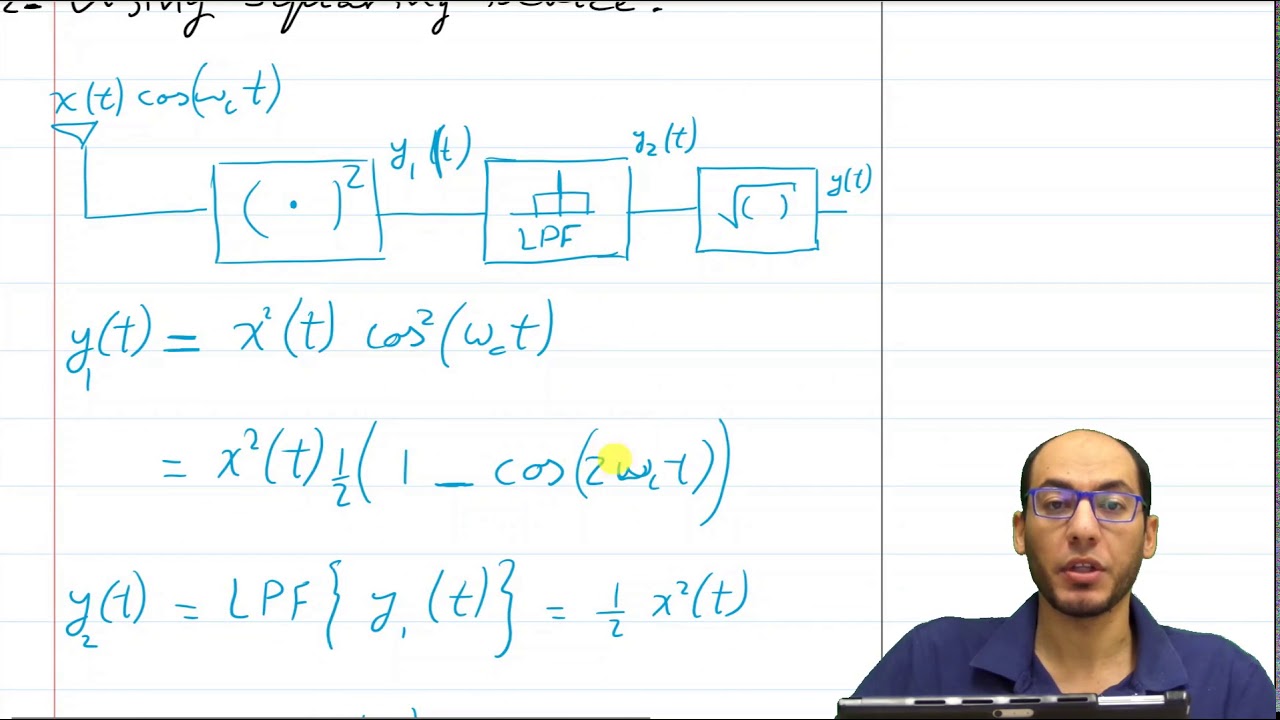 2- Using squaring device.
x(t) cos(ω_c t)
( · )² y₁(t) LPF y₂(t) √( ) y(t)
y₁(t) = x²(t) cos²(ω_c t)
= x²(t) ½ (1 – cos(2ω_c t))
y₂(t) = LPF{ y₁(t) } = ½ x²(t)